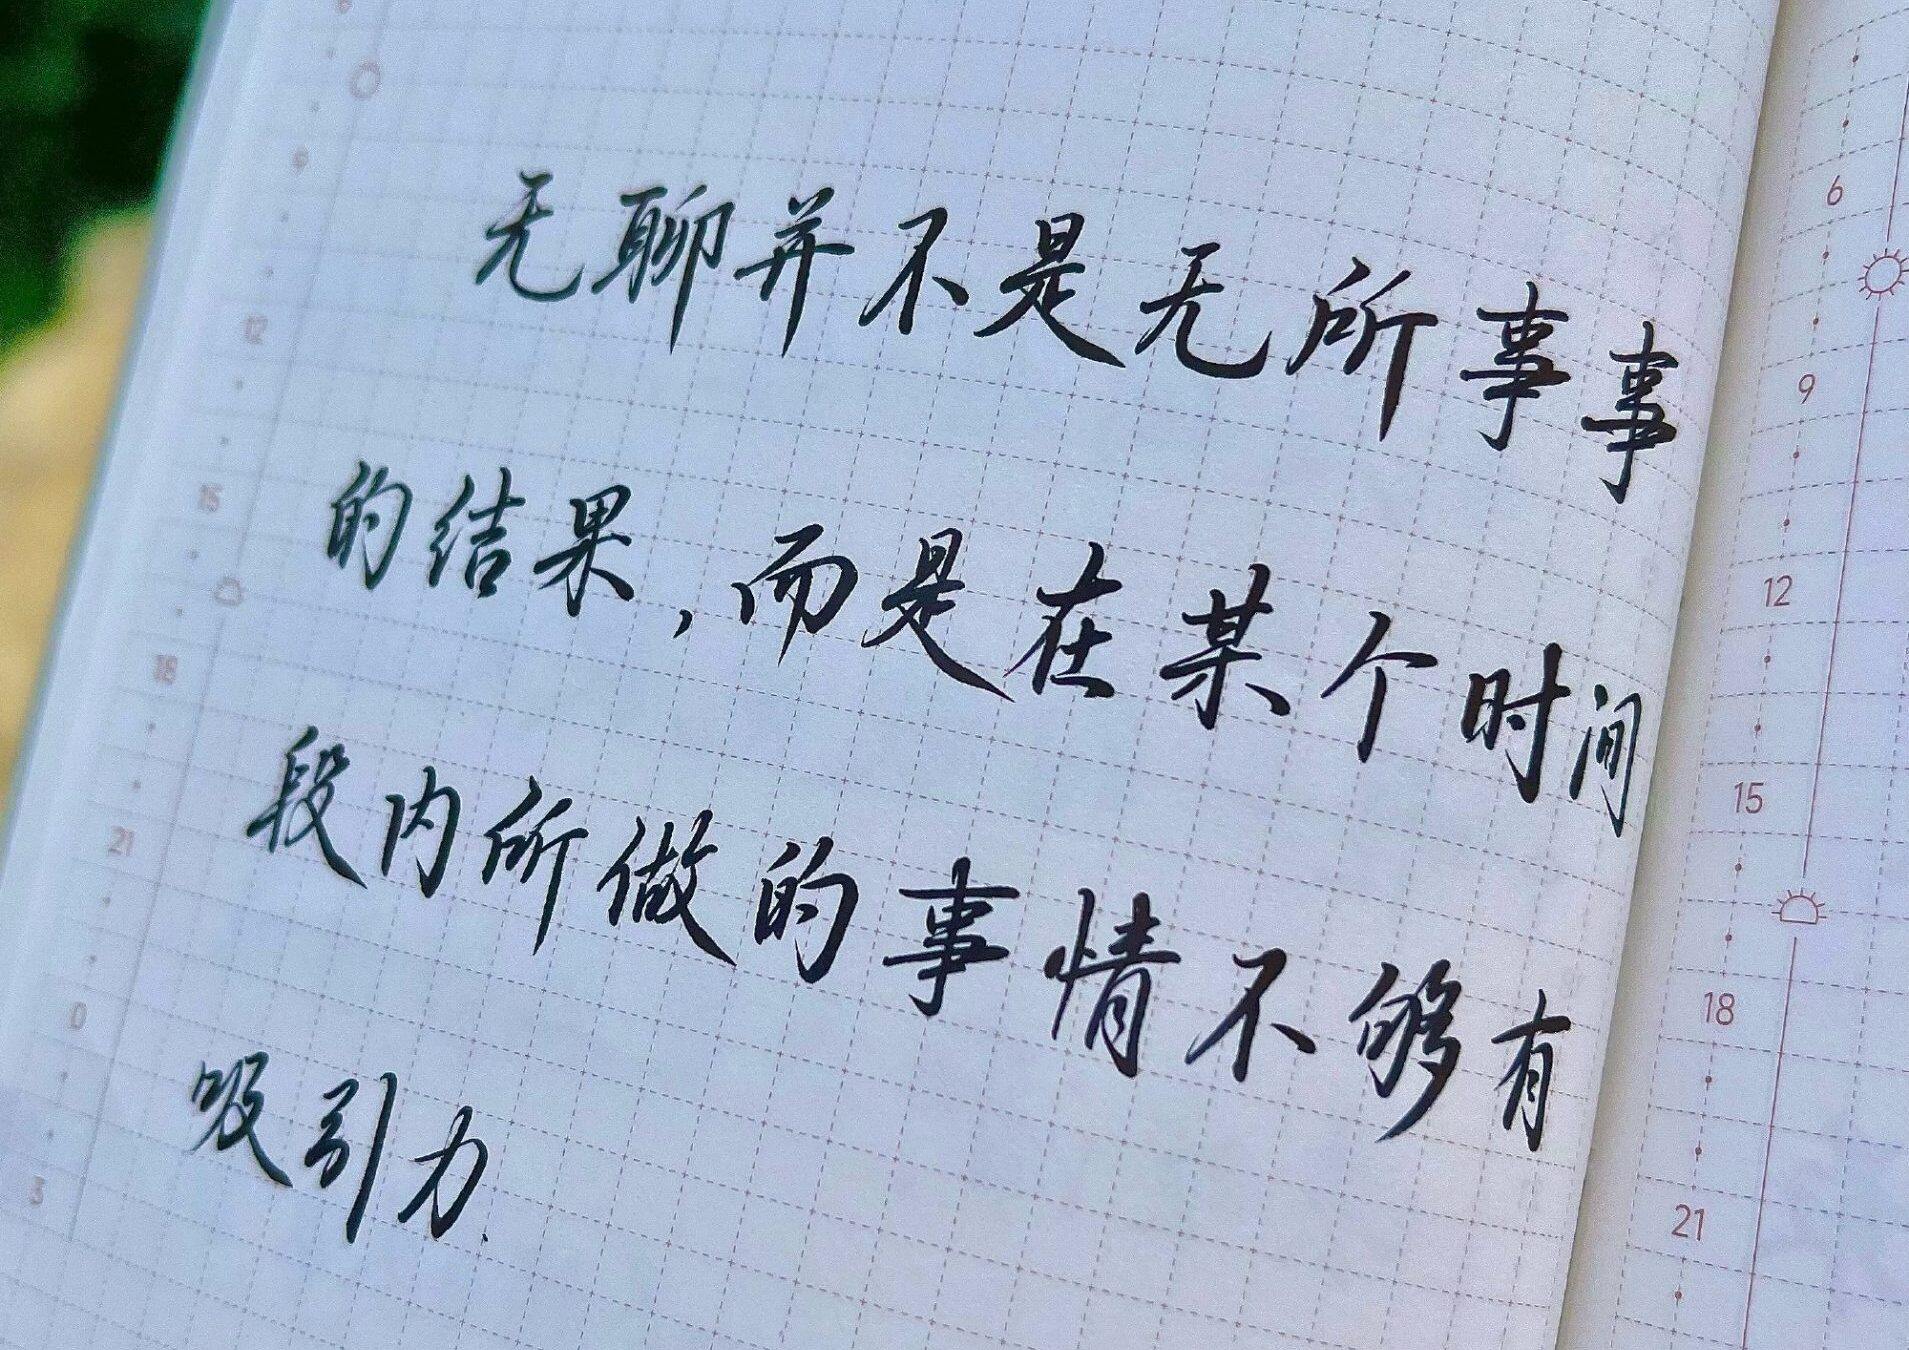 无聊并不是无所事事
的结果,而是在某个时间
段内所做的事情不够有
吸引力.
9
12
15
18
21
0
3
6
9
12
15
18
21